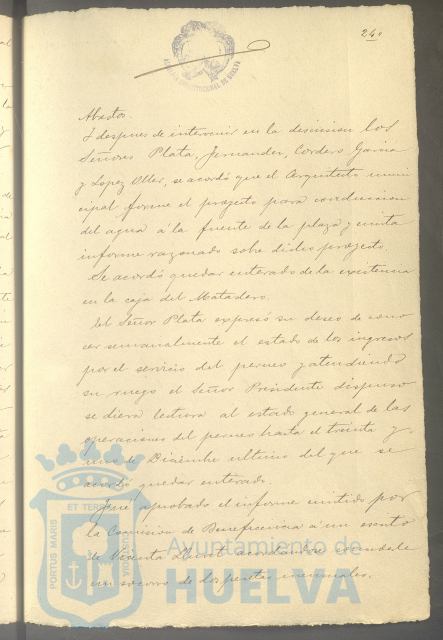 24.
ALCALDIA CONSTITUCIONAL DE HUELVA
Abastos.
Y despues de intervenir en la discusion los
Señores Plata, Fernandez, Cordero Garcia
y Lopez Oller, se acordó que el Arquitecto muni
cipal forme el proyecto para conduccion
del agua á la fuente de la plaza y emita
informe razonado sobre dicho proyecto.
Se acordó quedar enterado de la existencia
en la caja del Matadero.
El Señor Plata expresó su deseo de cono
cer semanalmente el estado de los ingresos
por el servicio del perneo y atendiendo
su ruego el Señor Presidente dispuso
se diera lectura al estado general de las
operaciones del perneo hasta el treinta y
uno de Diciembre ultimo del que se
acordó quedar enterado.
Fué aprobado el informe emitido por
la Comision de Beneficencia á un escrito
de Vicenta acordandose
un socorro de dos pesetas mensuales.
PORTUS MARIS ET TERRAE
Ayuntamiento de
HUELVA